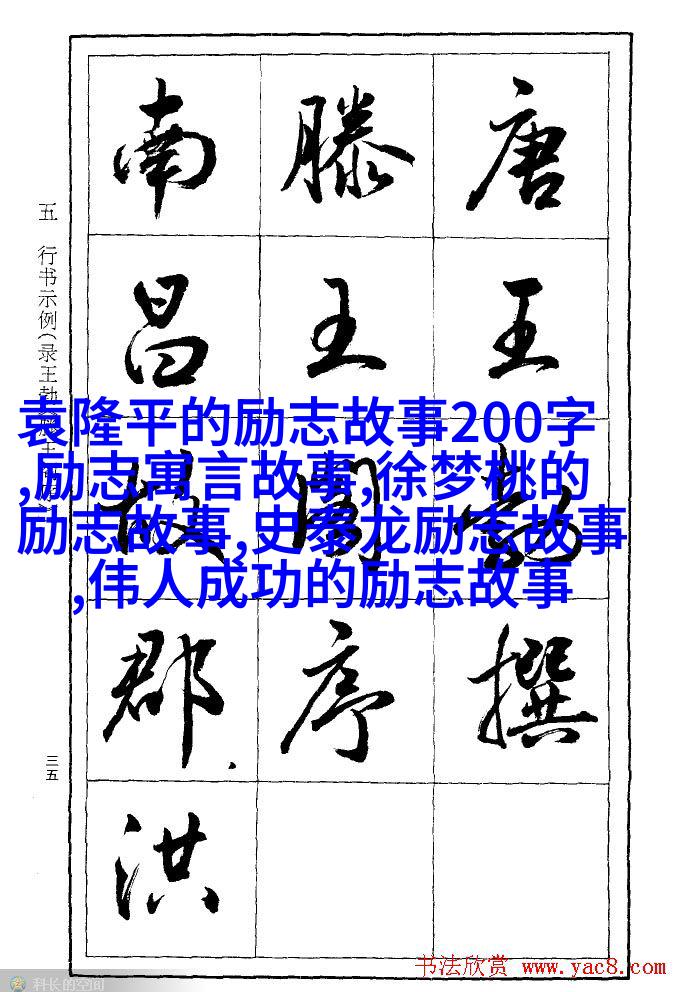 唐王勃撰
滕王阁序
南昌故郡洪
五 行书示例(录王勃滕王阁序)
三五
袁隆平的励志故事200字
,励志寓言故事,徐梦桃的
励志故事,史泰龙励志故事
,伟人成功的励志故事
书法欣赏 www.yac8.com
科长的空间